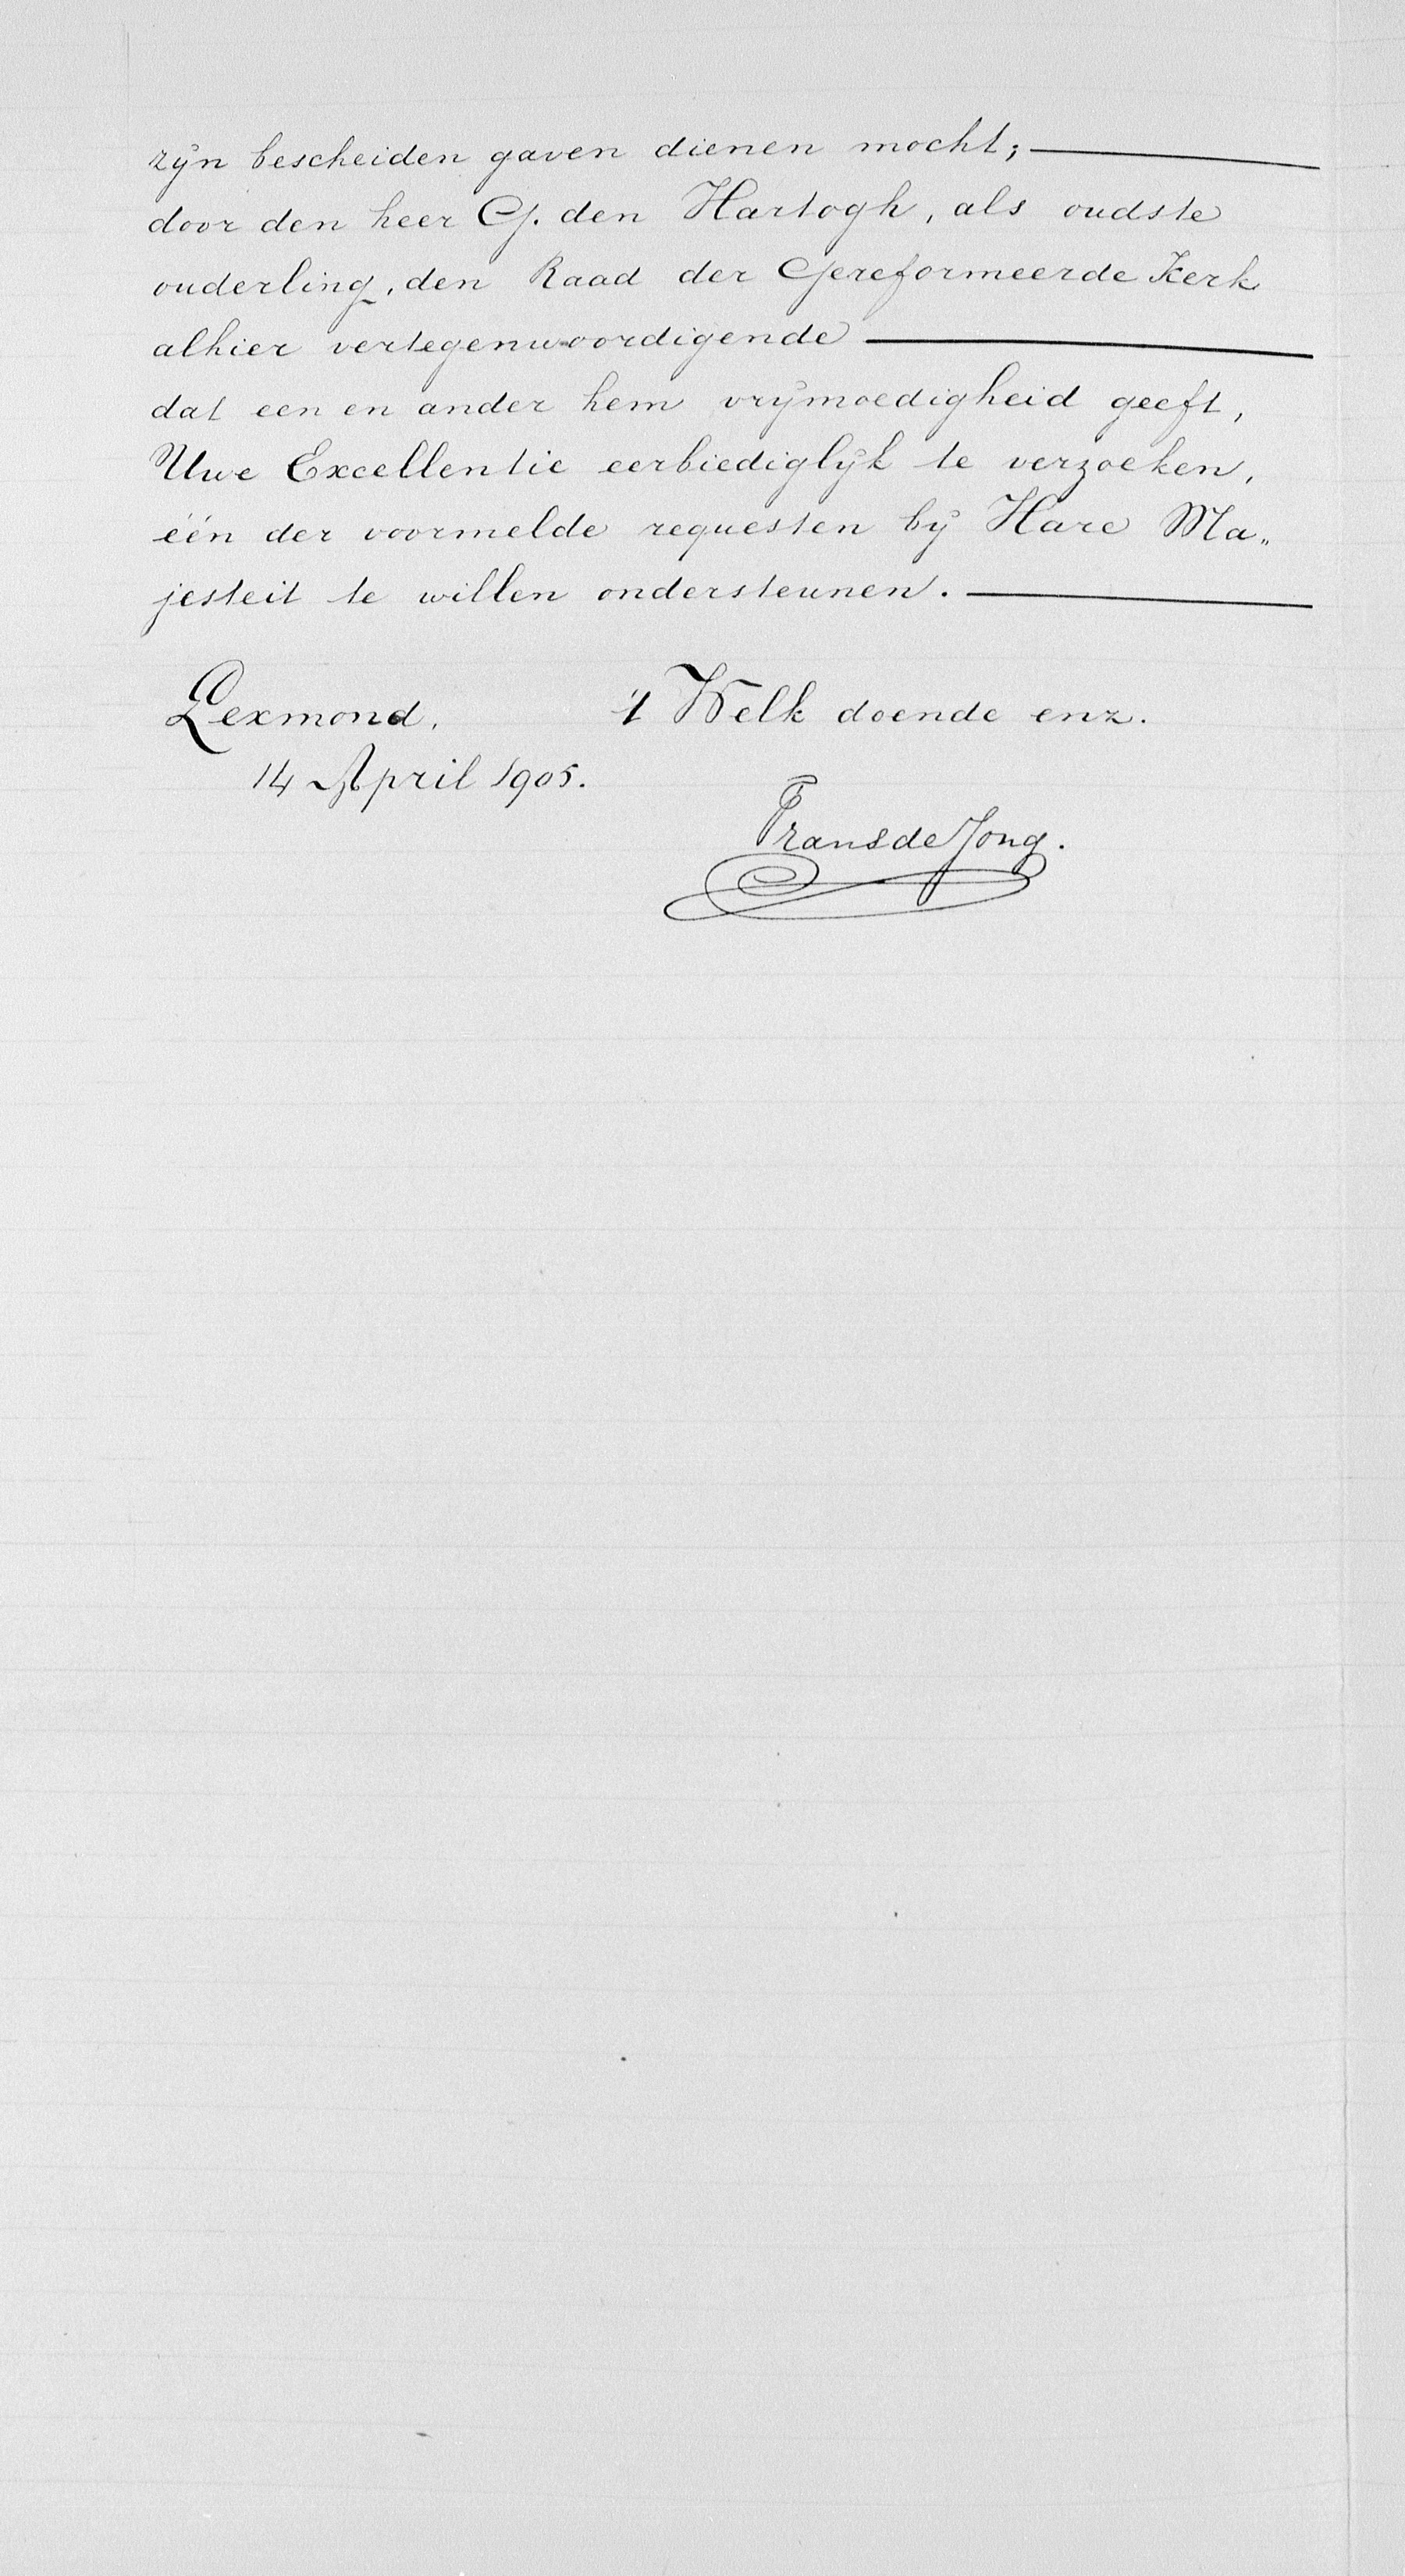 zijn bescheiden gaven dienen mocht;
door den heer G. den Hartogh, als oudste
ouderling, den Raad der Gereformeerde Kerk
alhier vertegenwoordigende
dat een en ander hem vrijmoedigheid geeft,
Uwe Excellentie eerbiediglijk te verzoeken,
één der voormelde requesten bij Hare Ma„
jesteit te willen ondersteunen.
Lexmond, 't Welk doende enz.
14 April 1905.
Frans de Jong.